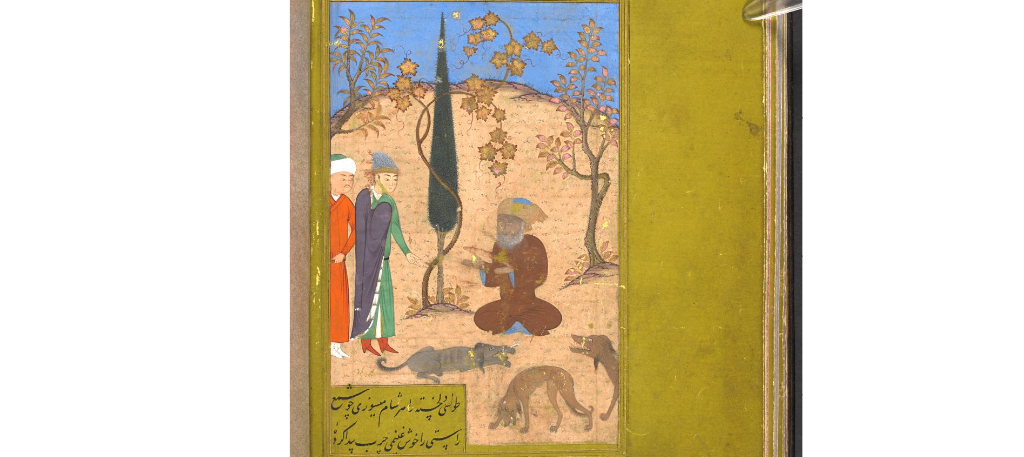 طوسی دلخسته را هر شام میسوزی چو شمع
راستی را خوش غنیمی چرب پیدا کردهٔ